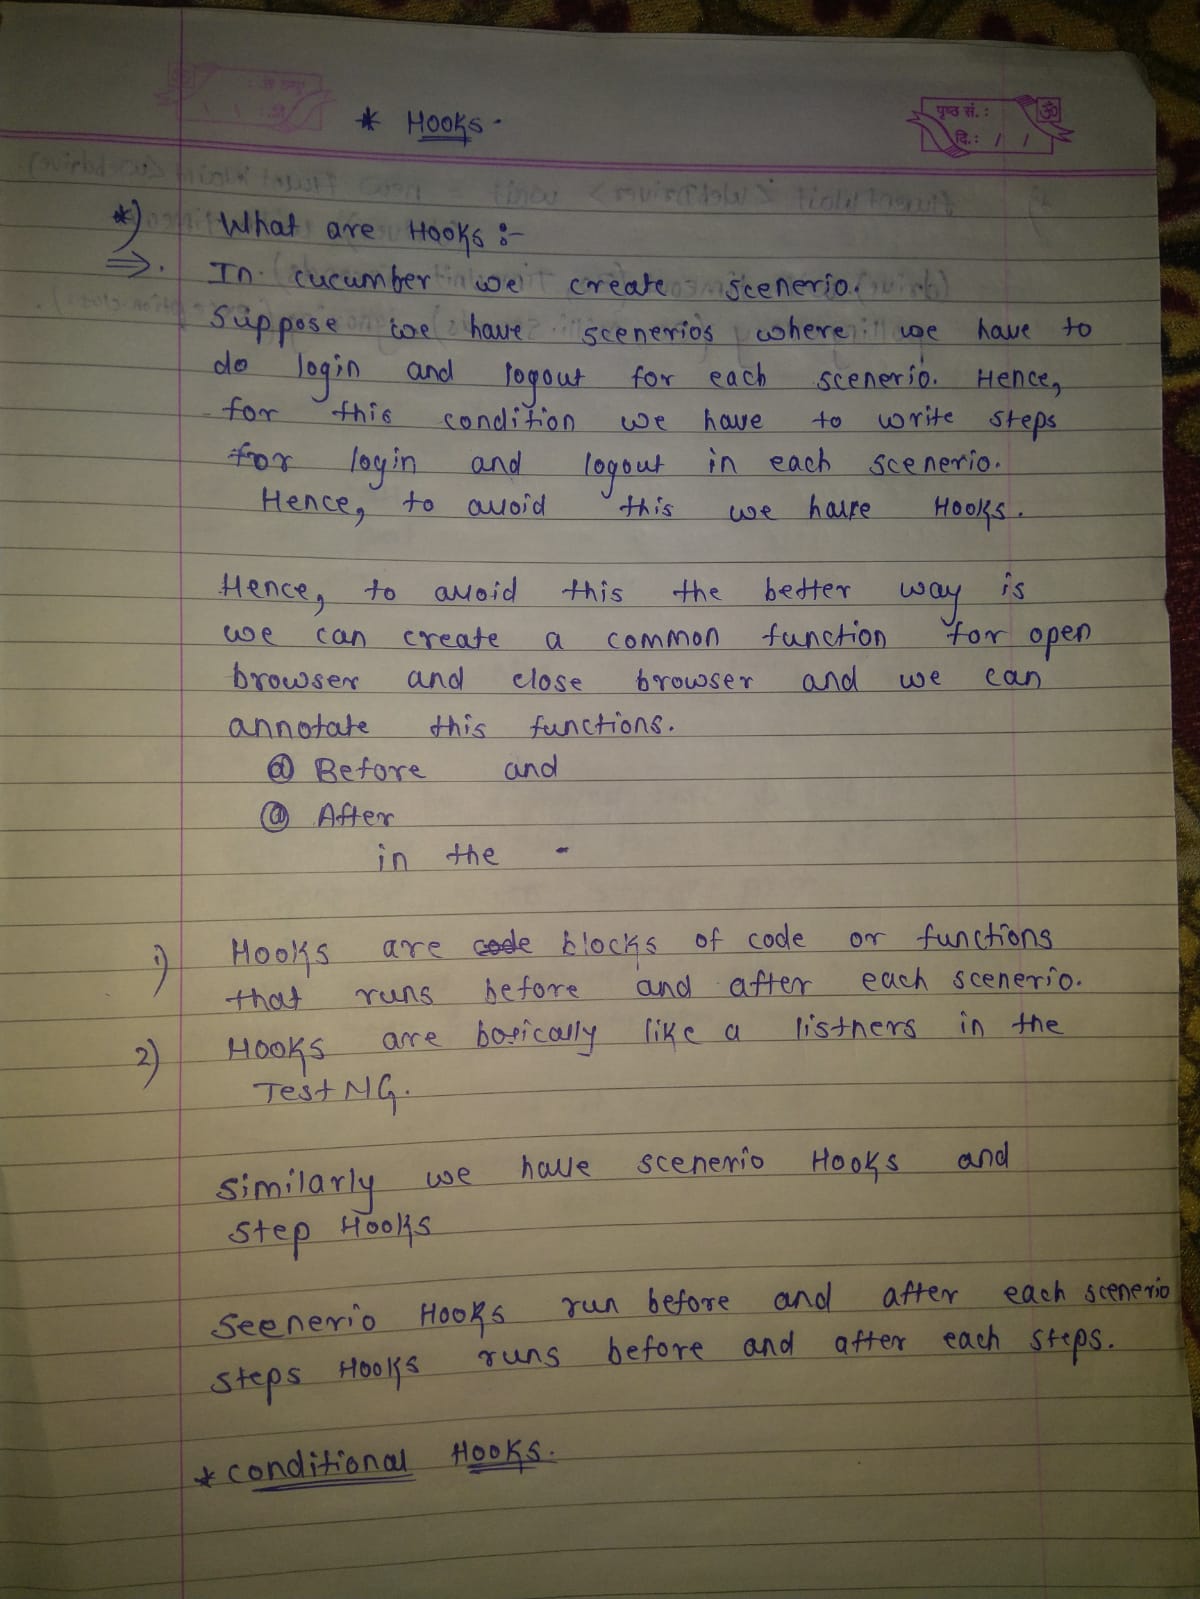 * Hooks.
पृष्ठ सं.:
ॐ
दि.: / /
*) What are Hooks :-
⇒. In cucumber we create scenerio.
Suppose we have scenerios where we have to
do login and logout for each scenerio. Hence,
for this condition we have to write steps
for login and logout in each scenerio.
Hence, to avoid this we have Hooks.
Hence, to avoid this the better way is
we can create a common function for open
browser and close browser and we can
annotate this functions.
@ Before and
@ After
in the -
1) Hooks are code blocks of code or functions
that runs before and after each scenerio.
2) Hooks are basically like a listners in the
TestNG.
Similarly we have scenerio Hooks and
step Hooks
Seenerio Hooks run before and after each scenerio
steps Hooks runs before and after each steps.
* conditional Hooks.